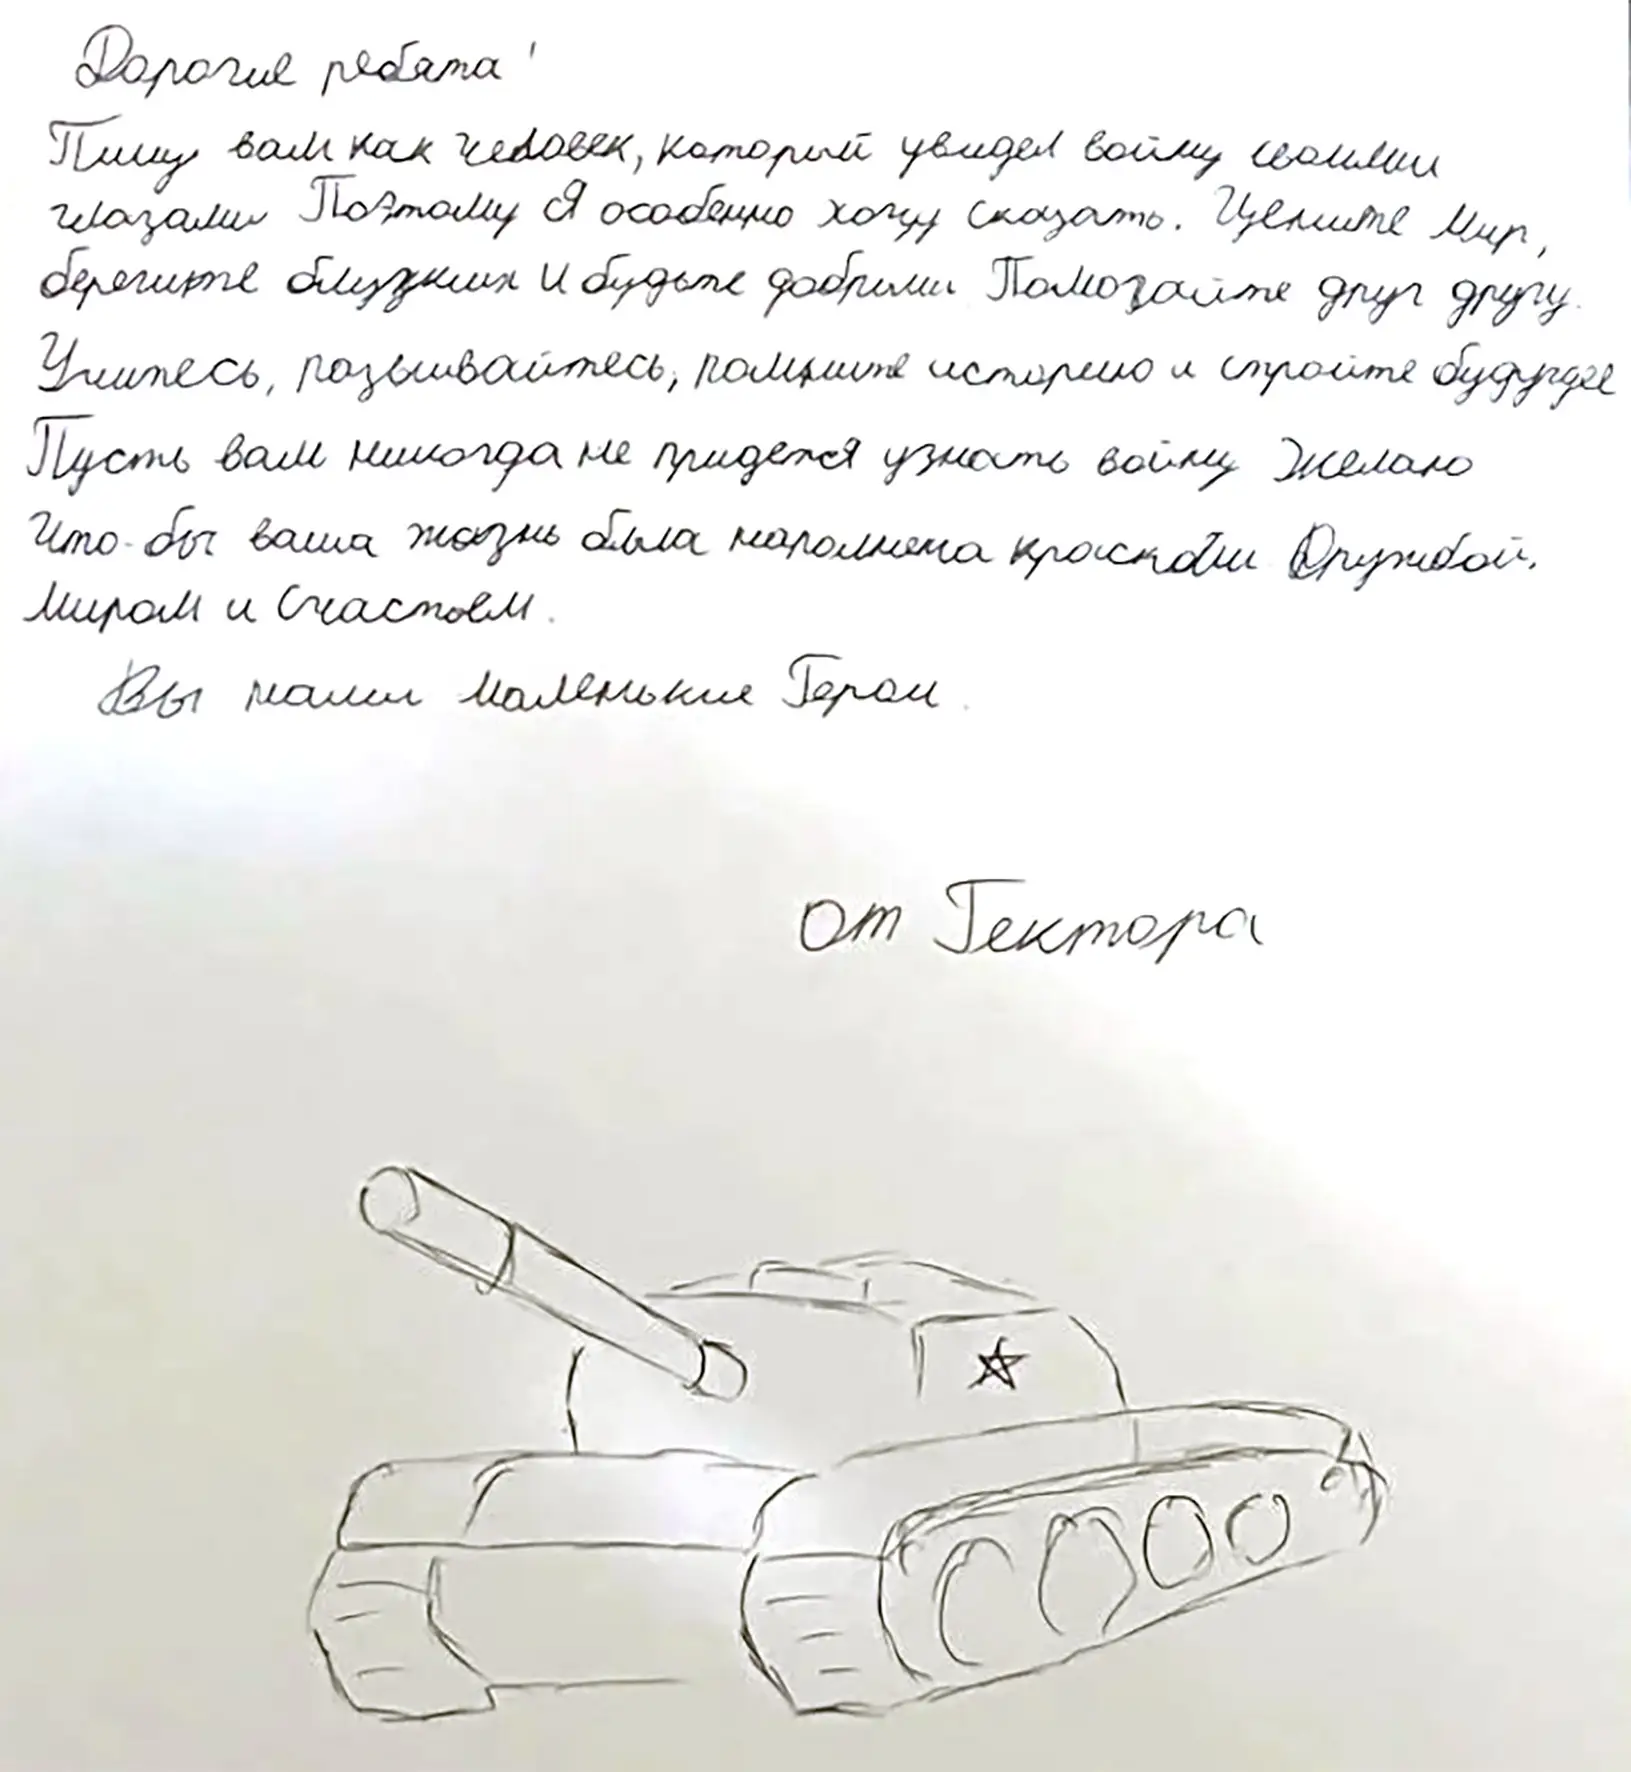 Дорогие ребята!
Пишу вам как человек, который увидел войну своими
глазами Поэтому Я особенно хочу сказать. Цените Мир,
берегите близких и будьте добрыми Помогайте друг другу.
Учитесь, развивайтесь, помните историю и стройте будущее
Пусть вам никогда не придется узнать войну Желаю
Что-бы ваша жизнь была наполнена красками Дружбой,
Миром и Счастьем.
Вы наши маленькие Герои.
От Гектора